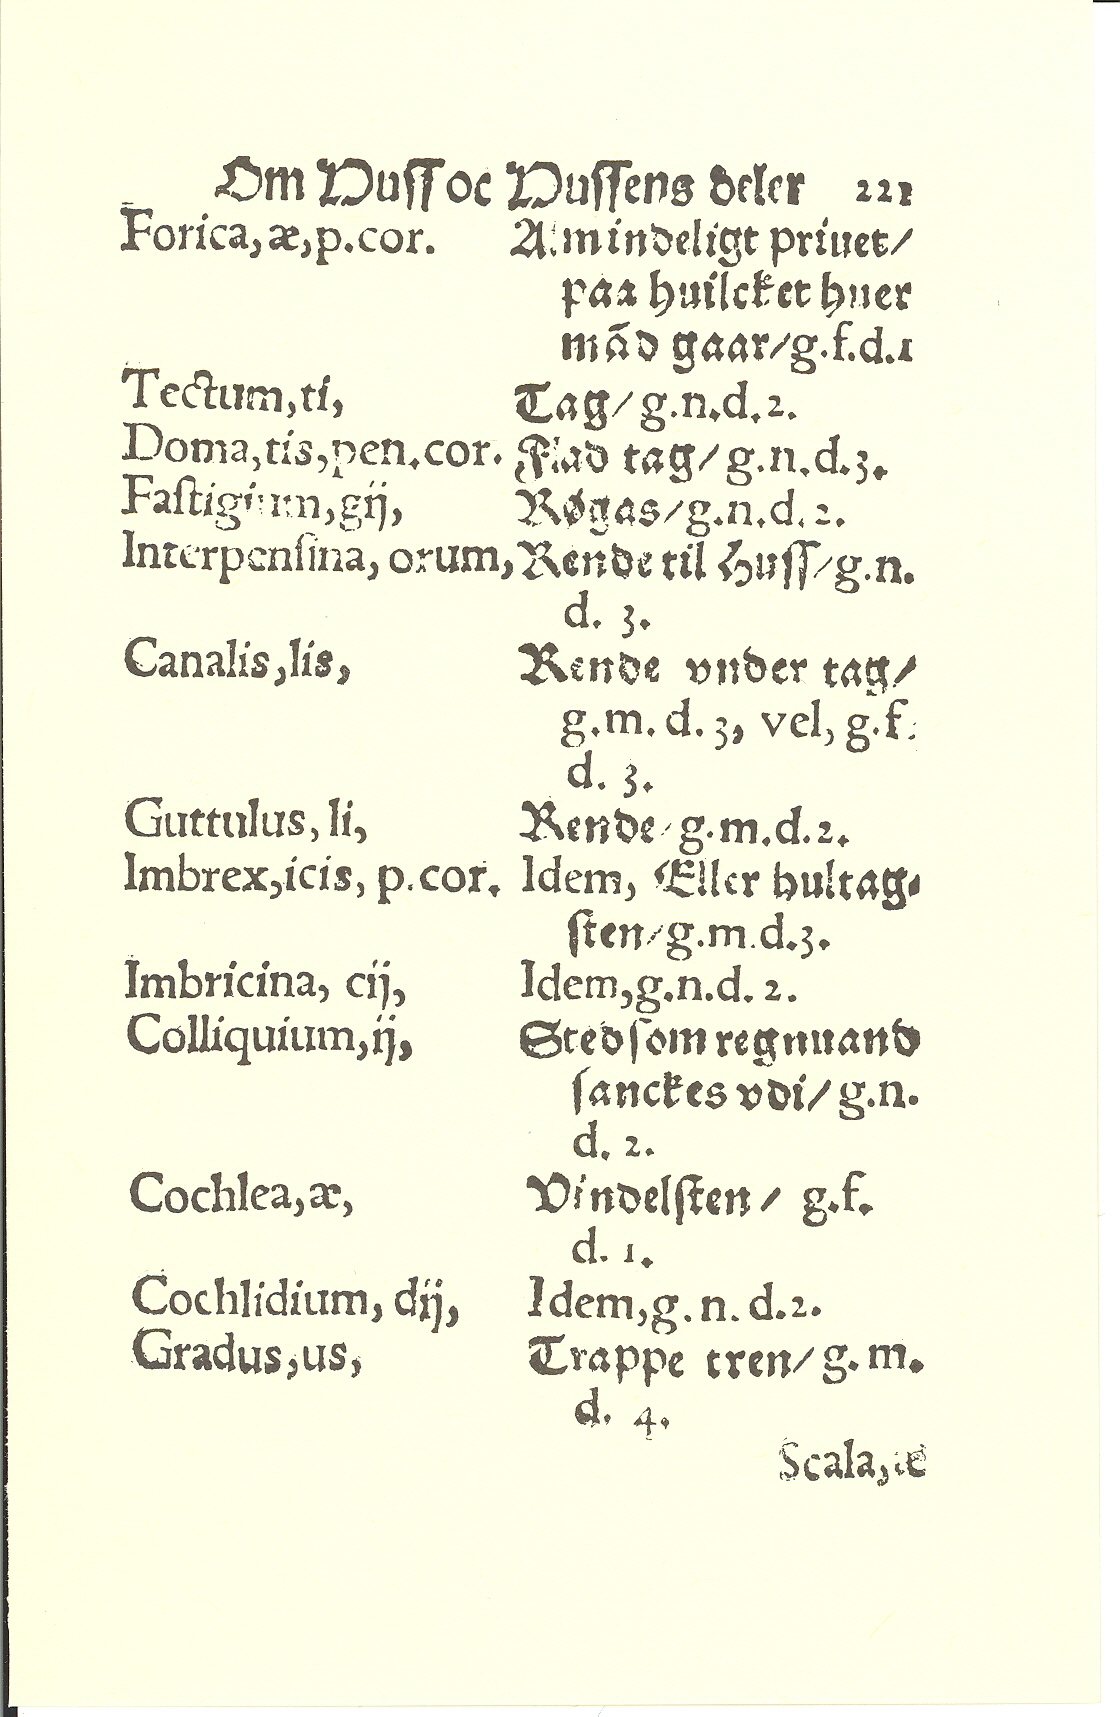 Om Huſſ oc Huſſens deler 221
Forica, æ, p.cor. Almindeligt priuet/
paa huilcket huer
mãd gaar/ g.f.d.1
Tectum, ti, Tag/ g.n.d.2.
Doma, tis, pen.cor. Flad tag/ g.n.d.3.
Faſtigium, gij, Røgas/ g.n.d.2.
Interpenſina, orum, Rende til Huſſ/ g.n.
d. 3.
Canalis, lis, Rende vnder tag/
g.m. d. 3, vel, g.f.
d. 3.
Guttulus, li, Rende/ g.m.d.2.
Imbrex, icis, p.cor. Idem, Eller hultag-
ſten/ g.m.d.3.
Imbricina, cij, Idem, g.n.d. 2.
Colliquium, ij, Sted ſom regnuand
ſanckes vdi/ g.n.
d. 2.
Cochlea, æ, Vindelſten/ g.f.
d. 1.
Cochlidium, dij, Idem, g. n. d.2.
Gradus, us, Trappe tren/ g. m.
d. 4.
Scala, æ